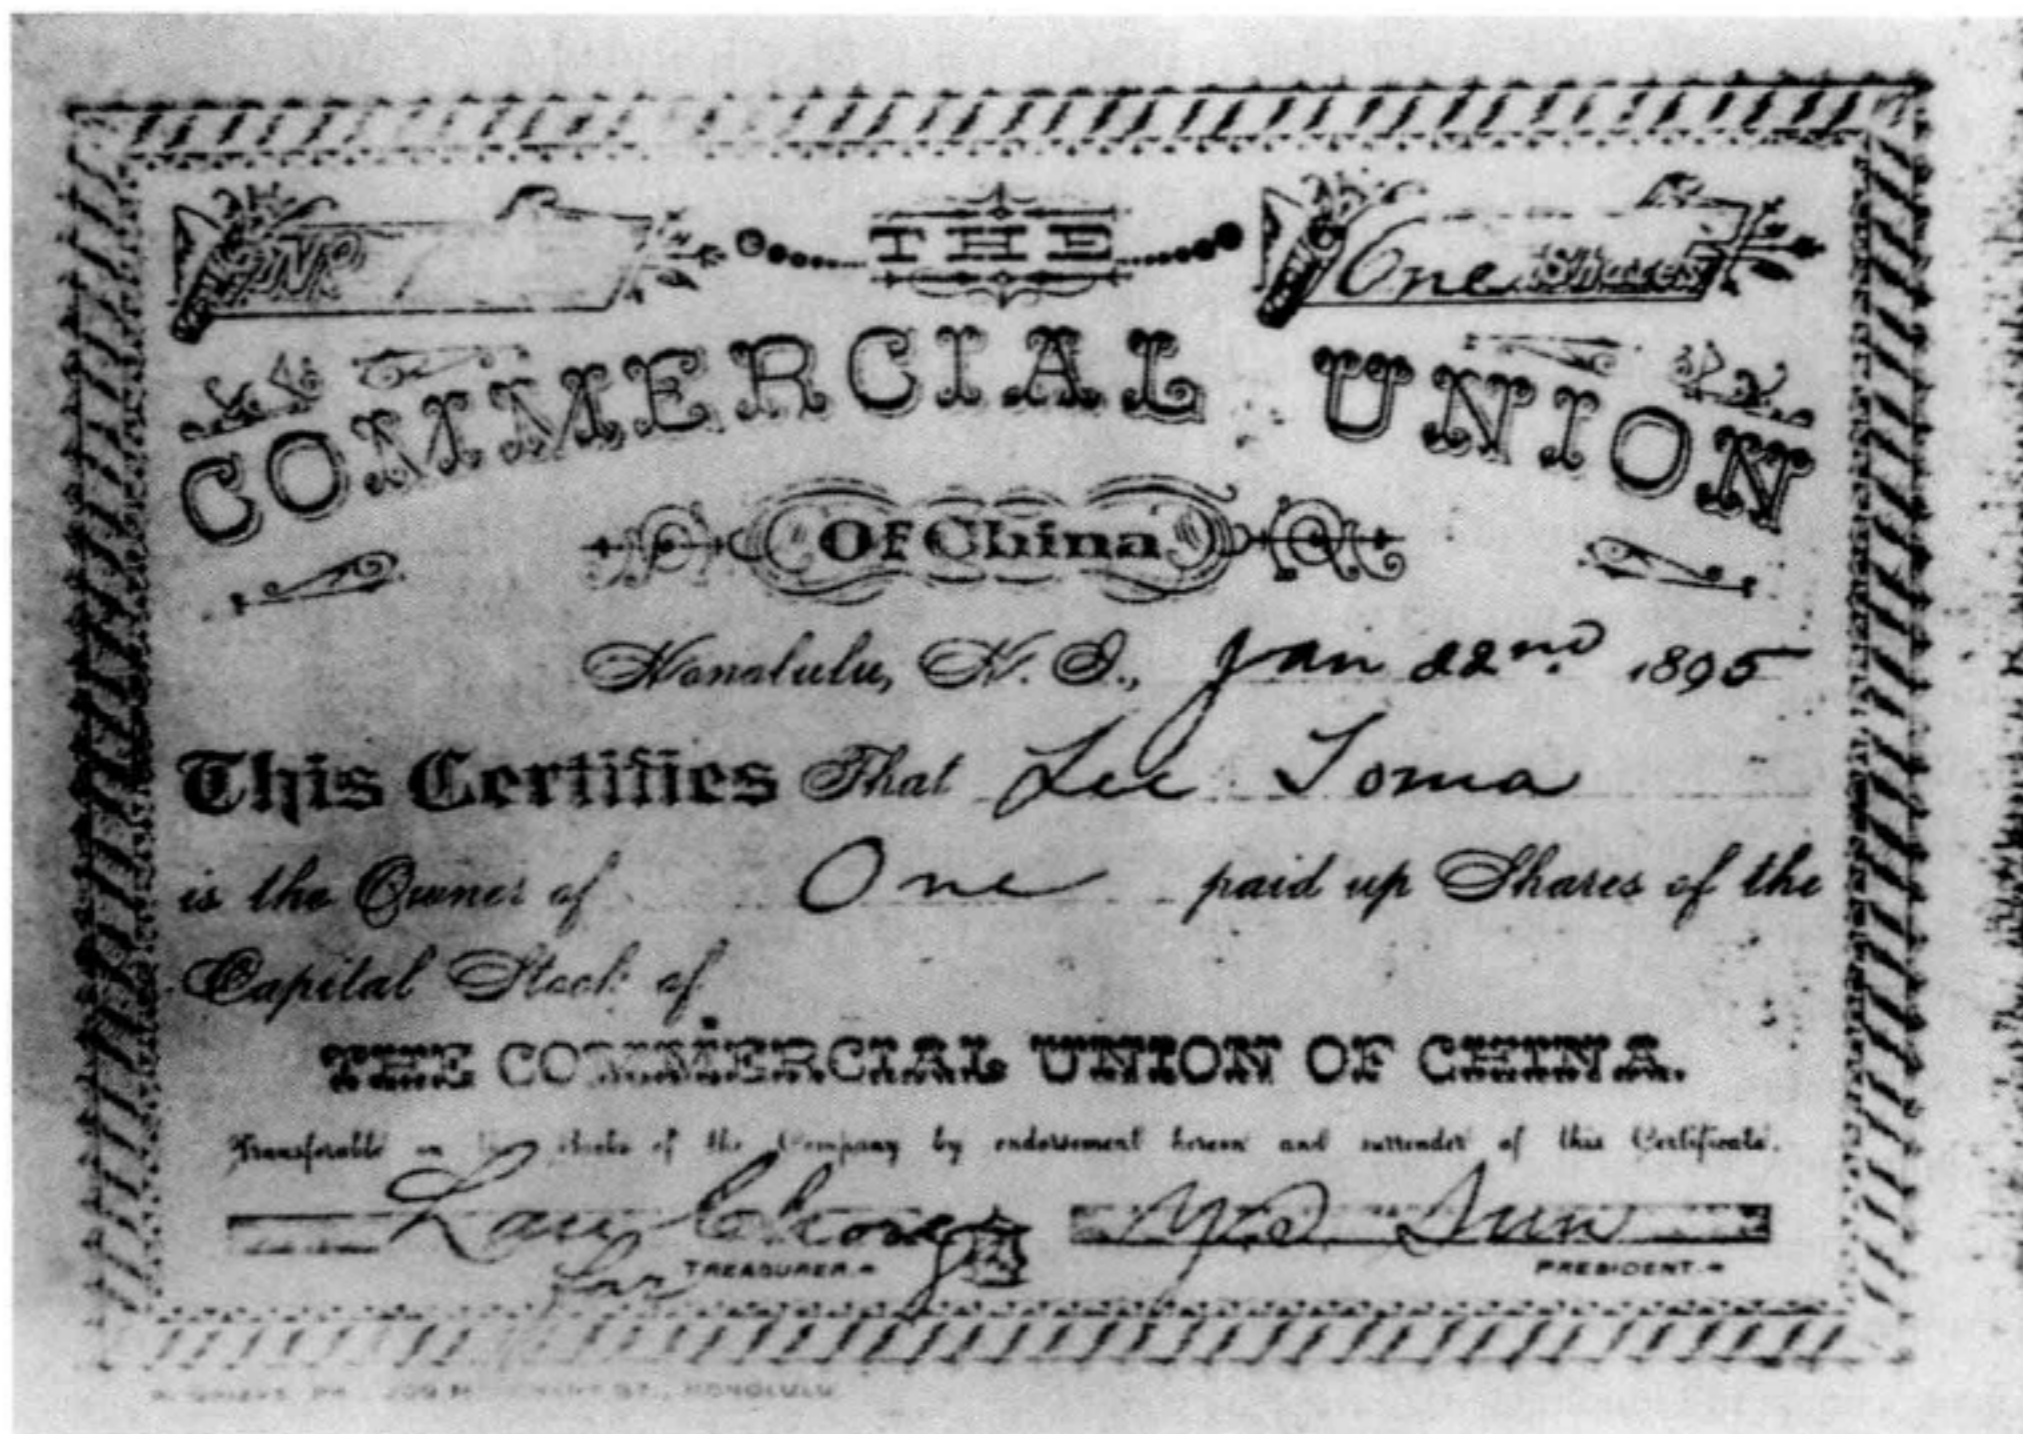 No
THE
One Shares
COMMERCIAL UNION
Of China
Honolulu, H. I., Jan 22nd 1895
This Certifies That Lee Toma
is the Owner of One paid up Shares of the
Capital Stock of
THE COMMERCIAL UNION OF CHINA.
Transferable on the Books of the Company by endorsement hereon and surrender of this Certificate.
Y.S. Sun
TREASURER.
PRESIDENT.
ST., HONOLULU